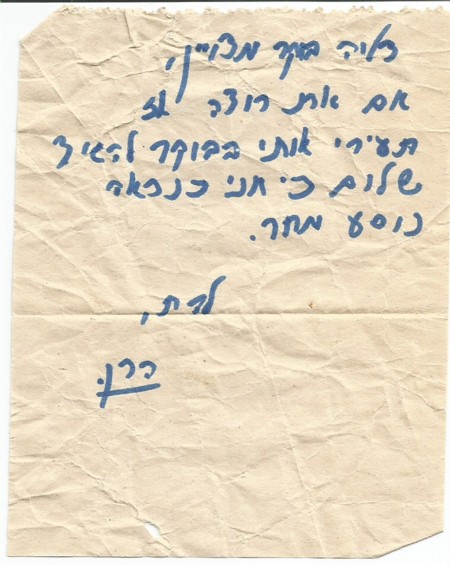 דליה בוקר מצויין,
אם את רוצה אז
תעירי אותי בבוקר להגיד
שלום כי אני כנראה
נוסע מחר.
להת,
הרן.